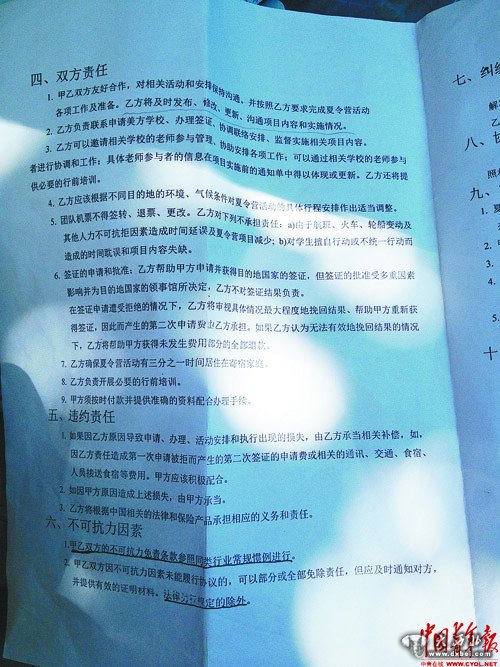 四、双方责任
1. 甲乙双方友好合作，对相关活动和安排保持沟通，并按照乙方要求完成夏令营活动
各项工作及准备。乙方将及时发布、修改、更新、沟通项目内容和实施情况。
2. 乙方负责联系申请美方学校、办理签证、协调联络安排、监督实施相关项目内容。
3. 乙方可以邀请相关学校的老师参与管理、协助安排各项工作；可以通过相关学校的老师参与
者进行协调和工作；具体老师参与者的信息在项目实施前的通知单中得以体现或更新。乙方还将提
供必要的行前培训。
4. 乙方应该根据不同目的地的环境、气候条件对夏令营活动的具体行程安排作出适当调整。
5. 团队机票不得签转、退票、更改。乙方对下列不承担责任：a)由于航班、火车、轮船变动及
其他人力不可抗拒因素造成时间延误及夏令营项目减少；b)对学生擅自行动或不统一行动而
造成的时间耽误和项目内容失缺。
6. 签证的申请和批准：乙方帮助甲方申请并获得目的地国家的签证，但签证的批准受多重因素
影响并为目的地国家的领事馆所决定，乙方不对签证结果负责。
在签证申请遭受拒绝的情况下，乙方将审视具体情况最大程度地挽回结果、帮助甲方重新获
得签证，因此而产生的第二次申请费由乙方承担。如果乙方认为无法有效地挽回结果的情况
下，乙方将帮助甲方获得未发生费用部分的全部退款。
7. 乙方确保夏令营活动有三分之一时间居住在寄宿家庭。
8. 乙方负责开展必要的行前培训。
9. 甲方须按时付款并提供准确的资料配合办理手续。
五、违约责任
1. 如果因乙方原因导致申请、办理、活动安排和执行出现的损失，由乙方承当相关补偿，如，
因乙方责任造成第一次申请被拒而产生的第二次签证的申请费或相关的通讯、交通、食宿、
人员接送食宿等费用。甲方应该积极配合。
2. 如因甲方原因造成上述损失，由甲方承当。
3. 乙方将根据中国相关的法律和保险产品承担相应的义务和责任。
六、不可抗力因素
1.甲乙双方的不可抗力免责条款参照同类行业常规惯例进行。
2. 甲乙双方因不可抗力因素未能履行协议的，可以部分或全部免除责任，但应及时通知对方，
并提供有效的证明材料。法律另有规定的除外。
七、纠纷
解
乙
八、
照
九、
1.
2.
3.
十
中国青年报
中青在线 WWW.CYOL.NET
www.dxbei.com